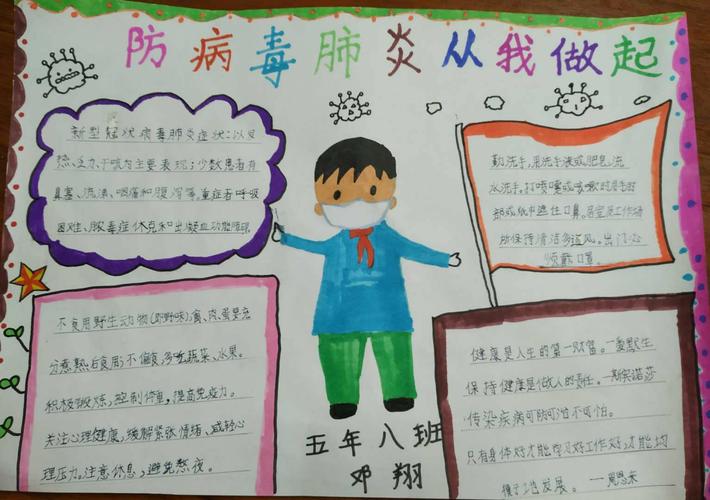 防病毒肺炎从我做起
新型冠状病毒肺炎症状:以发
热、乏力、干咳为主要表现;少数患者有
鼻塞、流涕、咽痛和腹泻等,重症者呼吸
困难、脓毒症休克和出凝血功能障碍
勤洗手,用洗手液或肥皂,流
水洗手,打喷嚏或咳嗽时用手肘
部或纸巾遮住口鼻。居室及工作场
所保持清洁多通风。出门必
须戴口罩。
不食用野生动物(即野味)禽、肉、蛋要充
分煮熟后食用;不偏食,多吃蔬菜、水果。
积极锻炼,控制体重,提高免疫力。
关注心理健康,缓解紧张情绪、减轻心
理压力。注意休息,避免熬夜。
健康是人生的第一财富。—爱默生
保持健康是做人的责任。—斯宾诺莎
传染疾病可防可治不可怕。
只有身体好才能学习好工作好,才能均
衡地发展。—周恩来
五年八班
邓翔